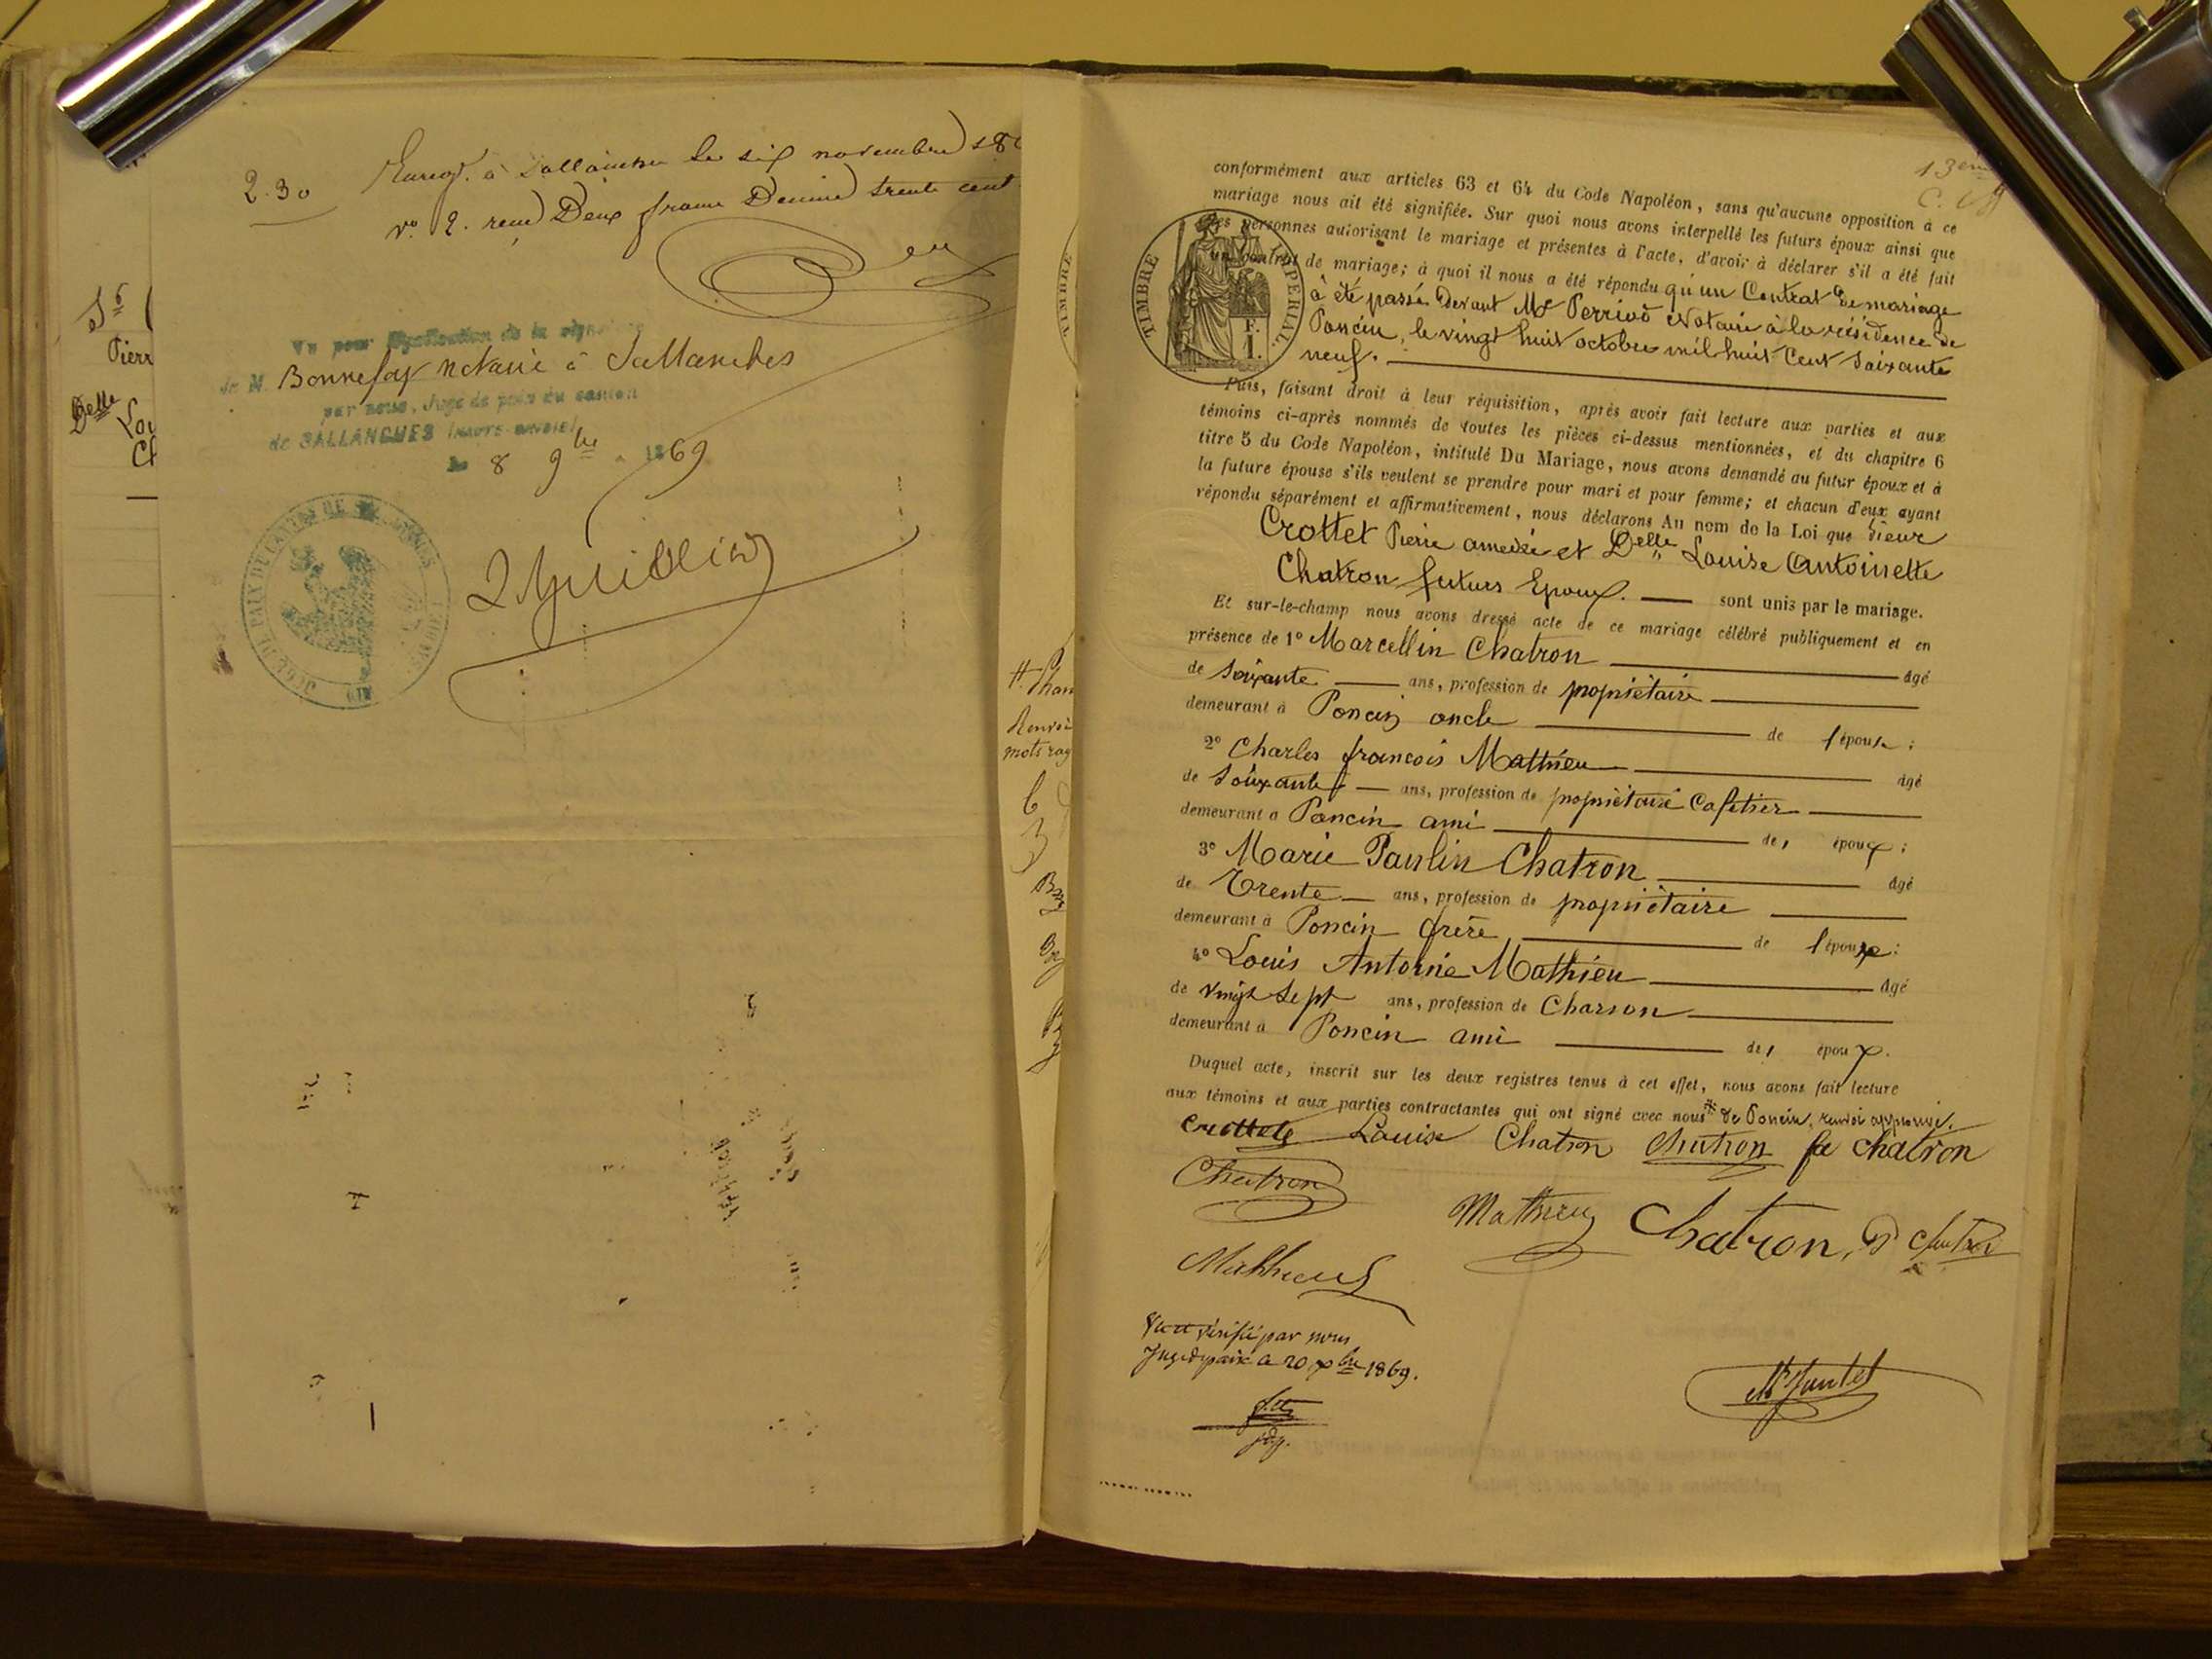 2.30
Enreg. à Sallanches le six novembre 186
vo 2. reçu Deux francs Decime trente cent
Vu pour légalisation de la signature
de M. Bonnefoy notaire à Sallanches
par nous, Juge de paix du canton
de SALLANCHES (HAUTE-SAVOIE)
le 8 9bre 1869
JUGE DE PAIX DU CANTON DE SALLANCHES
Sr
Pierr
Delle
Lou
Ch
Renvoi
mots ray
13eme
TIMBRE IMPERIAL
1 F.
conformément aux articles 63 et 64 du Code Napoléon, sans qu'aucune opposition à ce
mariage nous ait été signifiée. Sur quoi nous avons interpellé les futurs époux ainsi que
les personnes autorisant le mariage et présentes à l'acte, d'avoir à déclarer s'il a été fait
un contrat de mariage; à quoi il nous a été répondu qu'un Contrat de mariage
à été passé Devant Me Perrivd Notaire à la résidence de
Poncin, le vingt huit octobre mil huit Cent Soixante
neuf.
Puis, faisant droit à leur réquisition, après avoir fait lecture aux parties et aux
témoins ci-après nommés de toutes les pièces ci-dessus mentionnées, et du chapitre 6
titre 5 du Code Napoléon, intitulé Du Mariage, nous avons demandé au futur époux et à
la future épouse s'ils veulent se prendre pour mari et pour femme; et chacun d'eux ayant
répondu séparément et affirmativement, nous déclarons Au nom de la Loi que Sieur
Crottet Pierre amedée et Delle Louise Antoinette
Chatron futurs Epoux. sont unis par le mariage.
Et sur-le-champ nous avons dressé acte de ce mariage célébré publiquement et en
présence de 1° Marcellin Chatron âgé
de Soixante ans, profession de propriétaire
demeurant à Poncin oncle de l'épouse;
2° Charles francois Mathieu âgé
de Soixante ans, profession de propriétaire Cafetier
demeurant à Poncin ami de l'époux;
3° Marie Paulin Chatron âgé
de Trente ans, profession de propriétaire
demeurant à Poncin frère de l'épouse;
4° Louis Antoine Mathieu âgé
de vingt Sept ans, profession de Charron
demeurant à Poncin ami de l'époux.
Duquel acte, inscrit sur les deux registres tenus à cet effet, nous avons fait lecture
aux témoins et aux parties contractantes qui ont signé avec nous # de Poncin, renvoi approuvé.
Crottet Louise Chatron Chatron fe Chatron
Chatron
Mathieu Chatron, P Chatron
Mathieu
Vu et vérifié par nous
Juge de paix ce 20 xbre 1869.